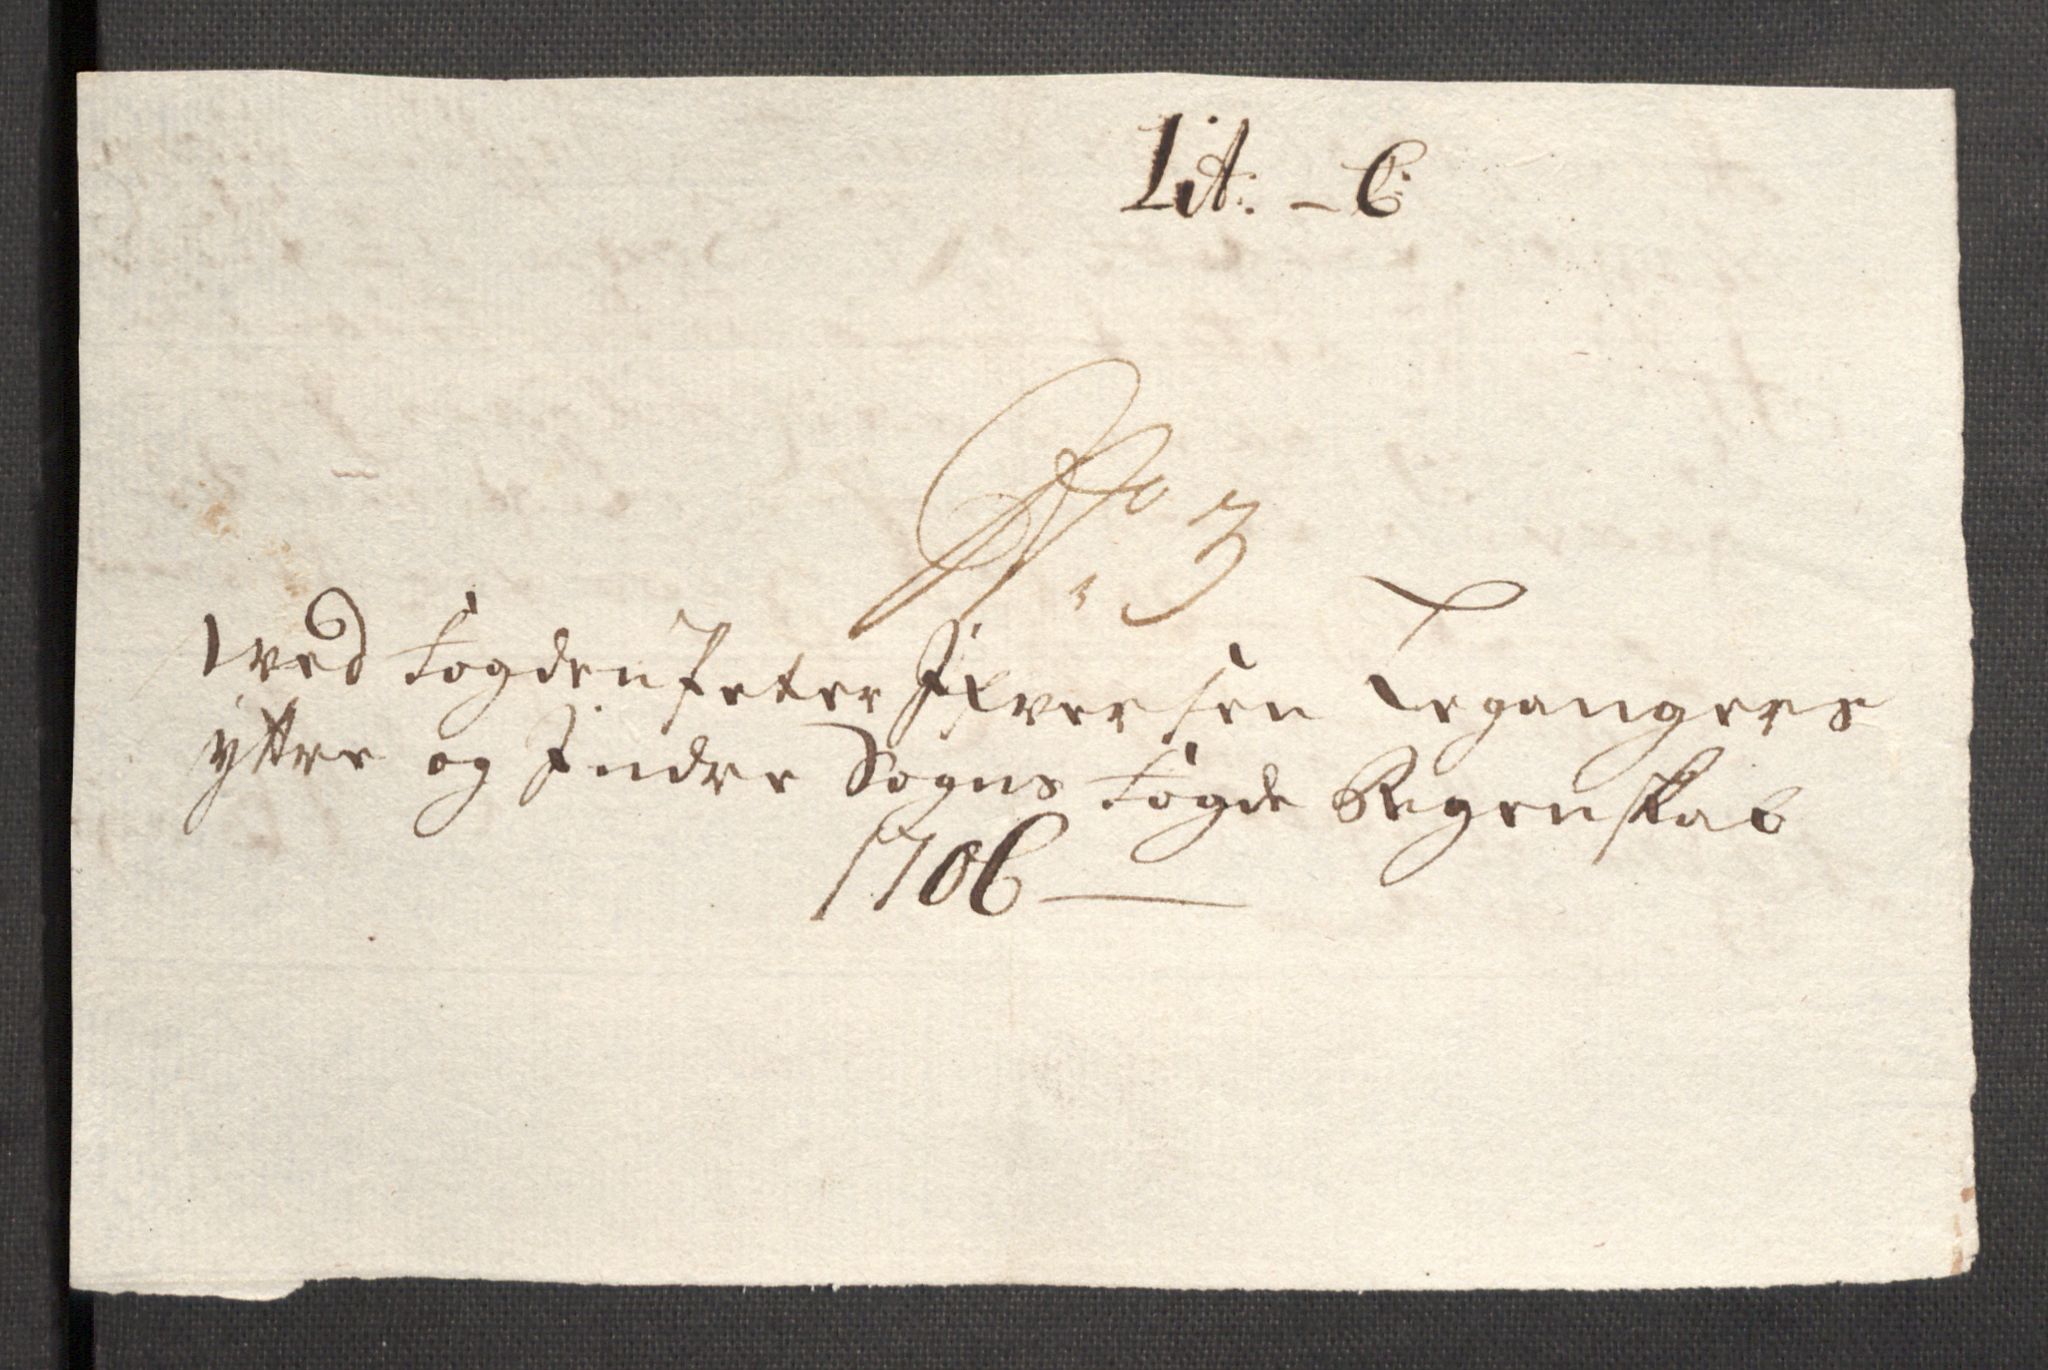 Lit: - C
No 3
wed Fogden Peter Ifversen Legangers
ytter og Indre Sogns Fogde Regenskab
1706